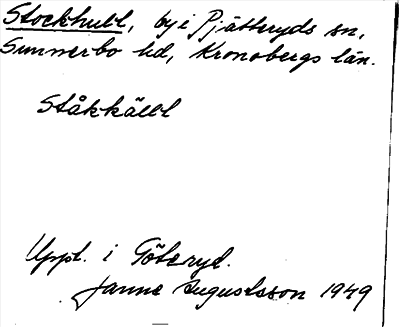 Stockhult, by i Pjätteryds sn,
Sunnerbo hd, Kronobergs län.
Ståkkällt
Uppt. i Göteryd.
Janne Augustsson 1949